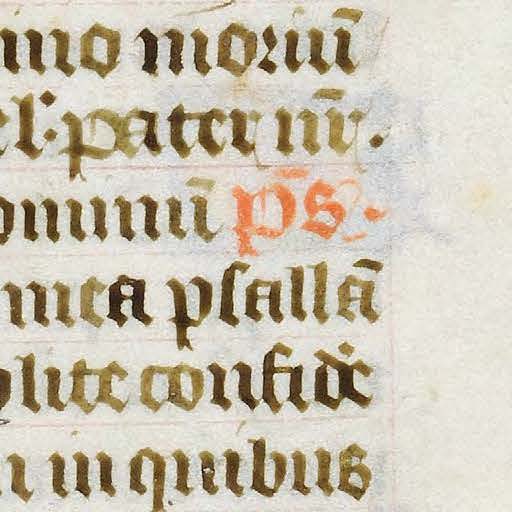 mo moriuȝ̄
el: pater nr̄.
ominū p̄s.
mea psallā
olite confidē
in quibus